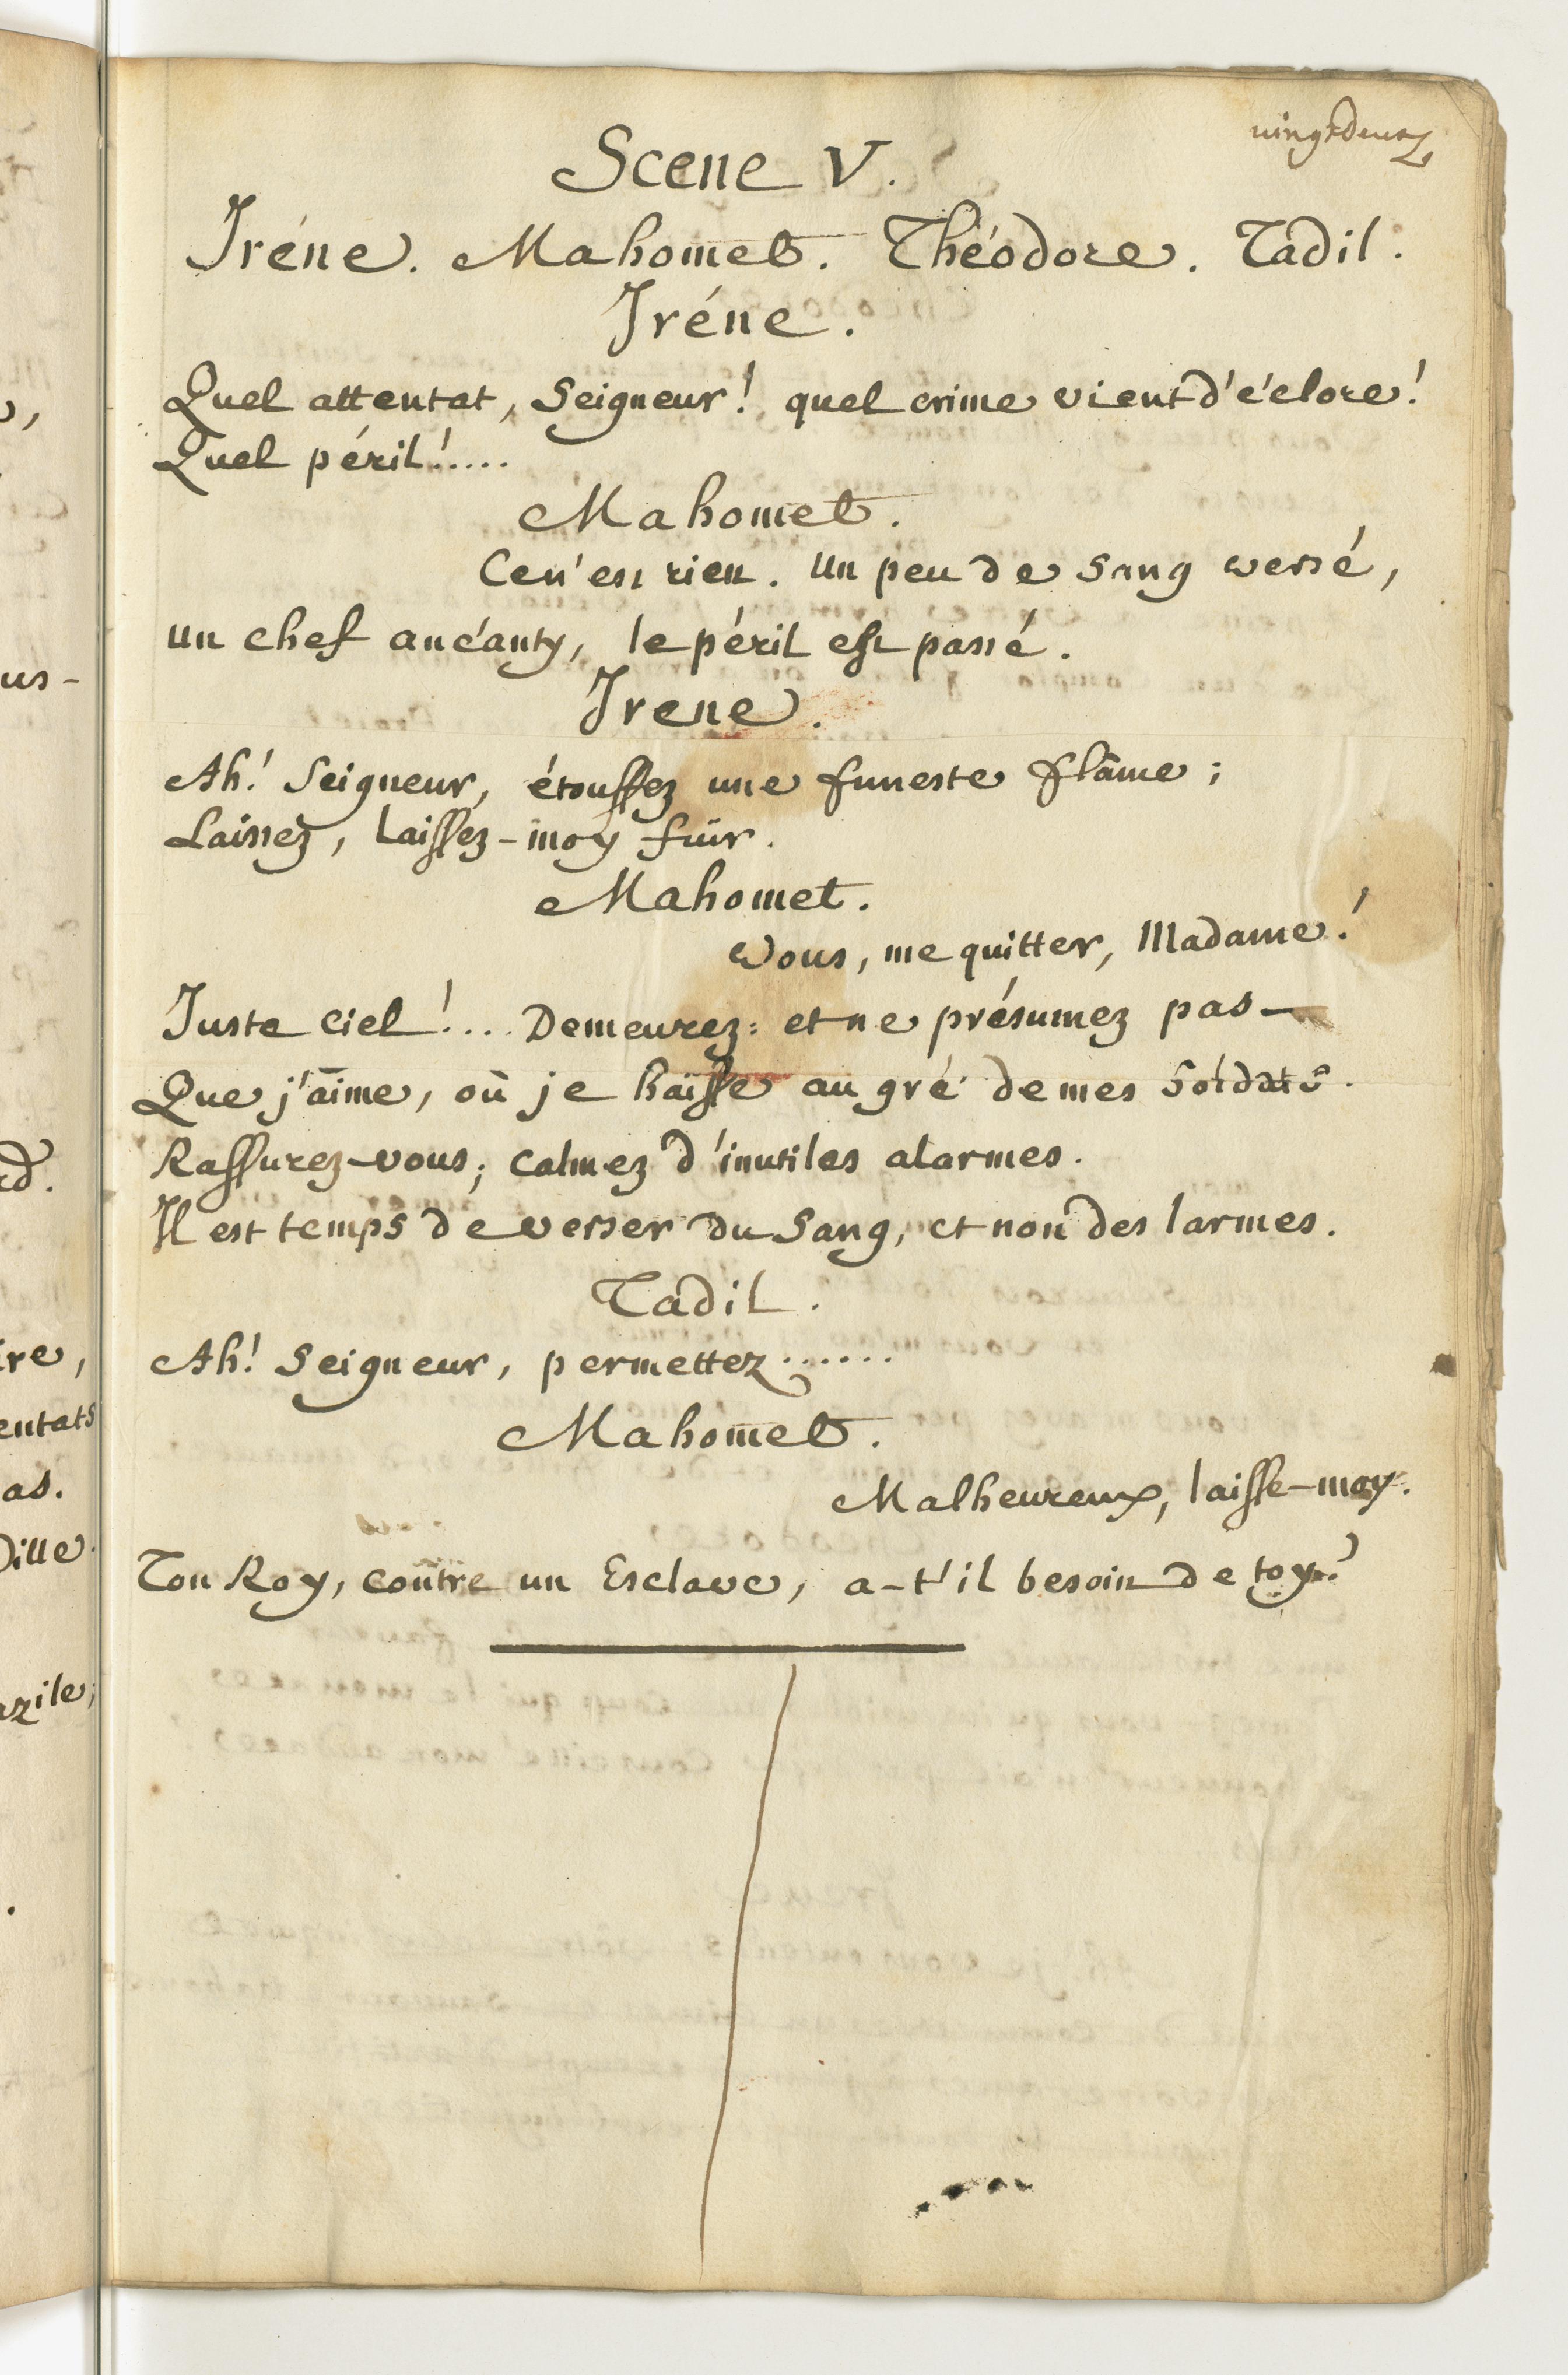 vingt deux
Scene V.
Iréne. Mahomet. Théodore. Tadil.
Iréne.
Quel attentat, Seigneur! quel crime vient d'éclore!
Quel péril!.....
Mahomet.
Ce n'est rien. Un peu de sang versé,
un chef anéanty, le péril est passé.
Irene.
Ah! Seigneur, étouffez une funeste flâme;
Laissez, laissez-moy fuir.
Mahomet.
Vous, me quitter, Madame!
Juste Ciel!.... Demeurez: et ne présumez pas
Que j'aime, où je haïsse au gré de mes Soldats.
Rassurez-vous; calmez d'inutiles alarmes.
Il est temps de verser du Sang, et non des larmes.
Tadil.
Ah! Seigneur, permettez......
Mahomet.
Malheureux, laisse-moy.
Ton Roy, contre un Esclave, a-t'il besoin de toy?